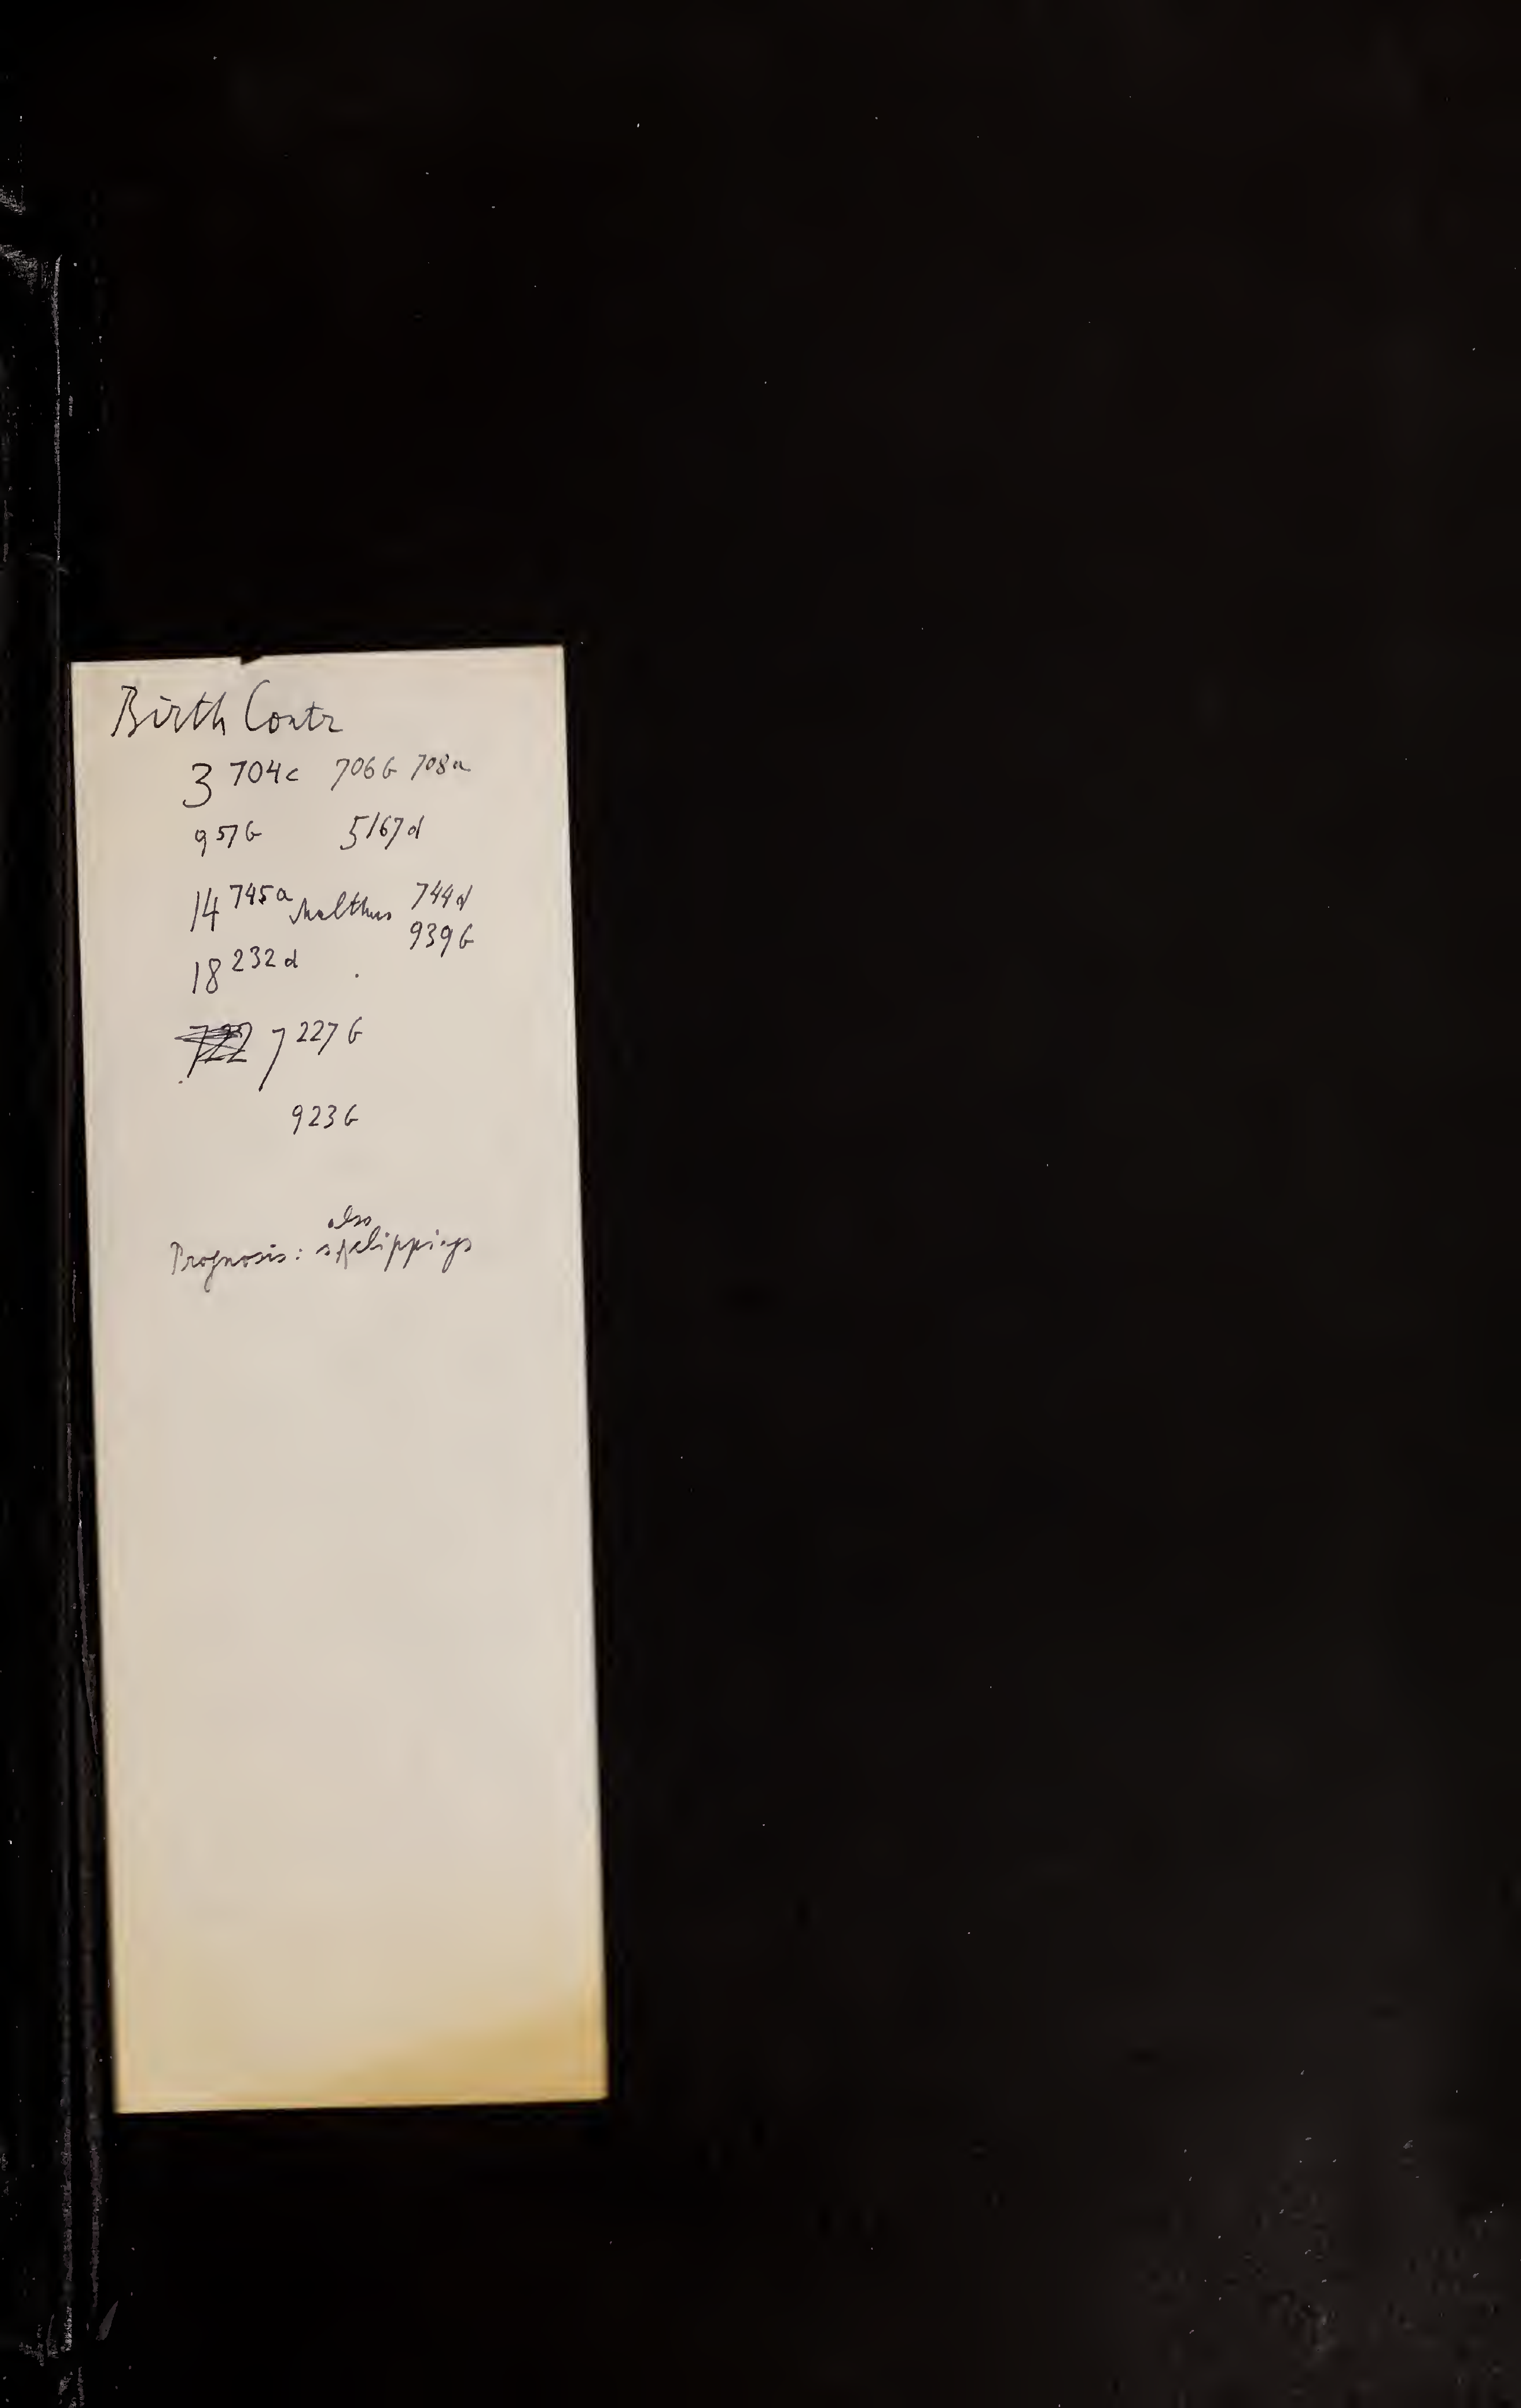 Birth Contr
3 704c 706b 708a
9 57b 5 167d
14 745a Malthus 744d
939b
18 232d
722 7 227b
923b
also
Prognosis: clippings